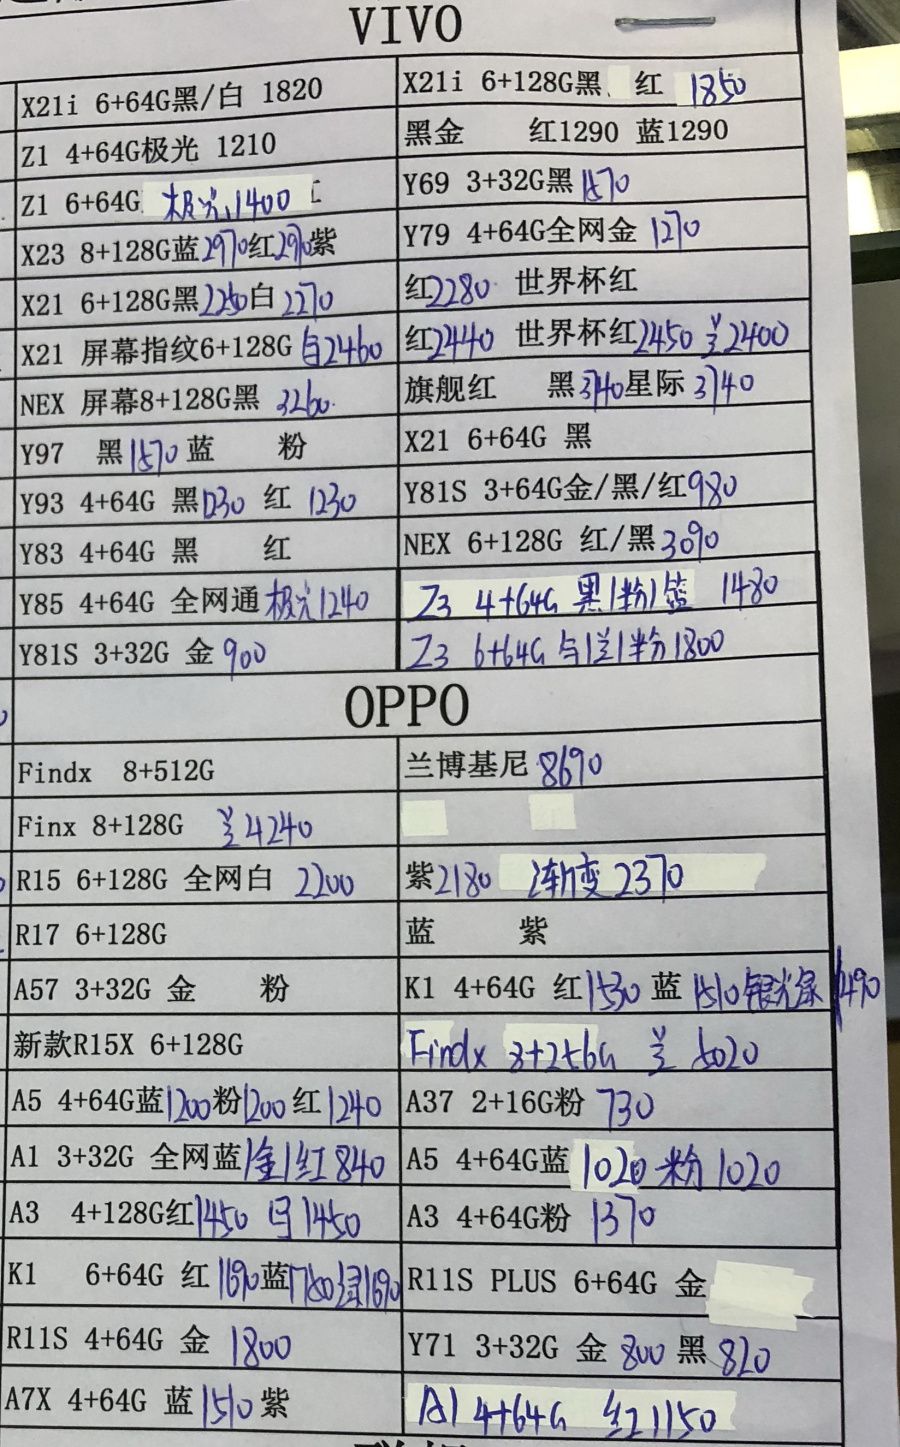 VIVO
X21i 6+64G黑/白 1820 X21i 6+128G黑、 红 1850
Z1 4+64G极光 1210 黑金 红1290 蓝1290
Z1 6+64G 极光、1400 Y69 3+32G黑 1570
X23 8+128G蓝2970红2970紫 Y79 4+64G全网金 1270
X21 6+128G黑2250白2270 红2280 世界杯红
X21 屏幕指纹6+128G 白2460 红2440 世界杯红2450 兰2400
NEX 屏幕8+128G黑 3260 旗舰红 黑3740星际 3740
Y97 黑1570 蓝 粉 X21 6+64G 黑
Y93 4+64G 黑1230 红 1230 Y81S 3+64G金/黑/红980
Y83 4+64G 黑 红 NEX 6+128G 红/黑3090
Y85 4+64G 全网通 极光1240 Z3 4+64G 黑/粉/蓝 1480
Y81S 3+32G 金 900 Z3 6+64G /兰/粉1800
OPPO
Findx 8+512G 兰博基尼 8690
Finx 8+128G 兰4240
R15 6+128G 全网白 2200 紫2180 渐变2370
R17 6+128G 蓝 紫
A57 3+32G 金 粉 K1 4+64G 红1530 蓝 1510银光绿1490
新款R15X 6+128G Findx 8+256G 兰 5020
A5 4+64G蓝1200粉1200 红1240 A37 2+16G粉 730
A1 3+32G 全网蓝/金/红840 A5 4+64G蓝 1020 粉1020
A3 4+128G红1450 1450 A3 4+64G粉 1370
K1 6+64G 红 1690蓝1780绿1690 R11S PLUS 6+64G 金
R11S 4+64G 金 1800 Y71 3+32G 金 800 黑 820
A7X 4+64G 蓝1510紫 A1 4+64G 红1150